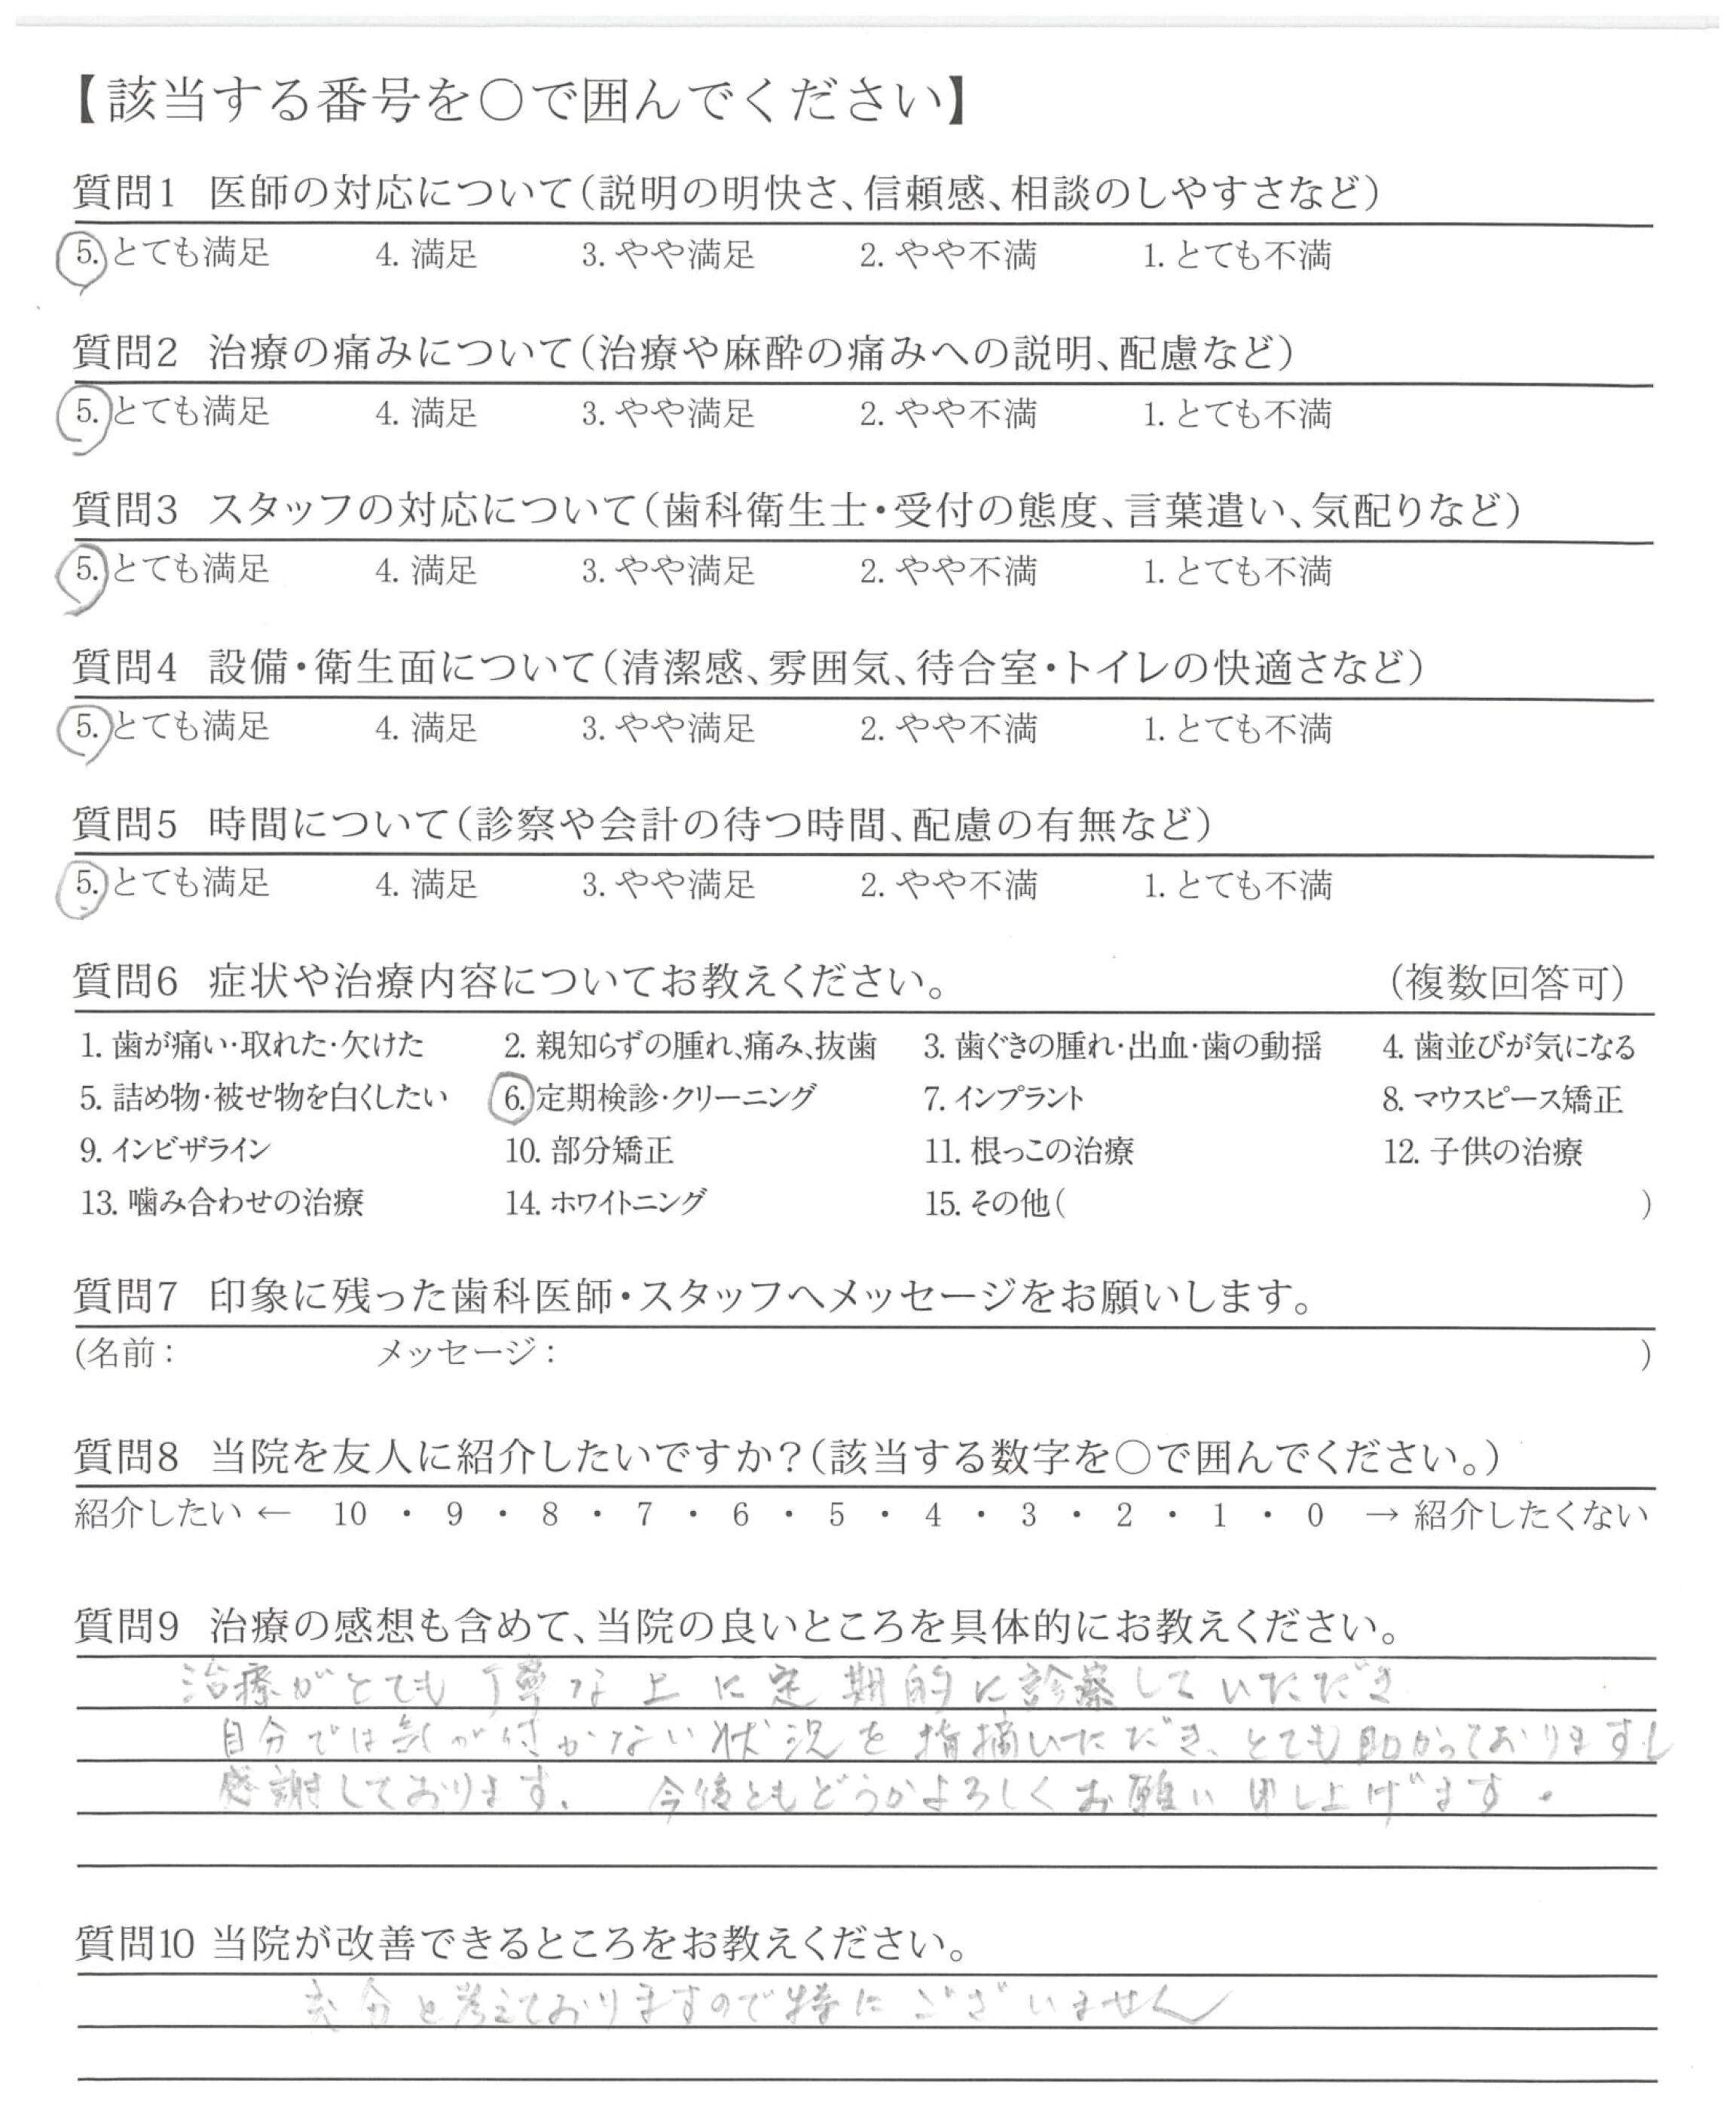 【該当する番号を○で囲んでください】
質問1 医師の対応について(説明の明快さ、信頼感、相談のしやすさなど)
5. とても満足 4. 満足 3. やや満足 2. やや不満 1. とても不満
質問2 治療の痛みについて(治療や麻酔の痛みへの説明、配慮など)
5. とても満足 4. 満足 3. やや満足 2. やや不満 1. とても不満
質問3 スタッフの対応について(歯科衛生士・受付の態度、言葉遣い、気配りなど)
5. とても満足 4. 満足 3. やや満足 2. やや不満 1. とても不満
質問4 設備・衛生面について(清潔感、雰囲気、待合室・トイレの快適さなど)
5. とても満足 4. 満足 3. やや満足 2. やや不満 1. とても不満
質問5 時間について(診察や会計の待つ時間、配慮の有無など)
5. とても満足 4. 満足 3. やや満足 2. やや不満 1. とても不満
質問6 症状や治療内容についてお教えください。 (複数回答可)
1. 歯が痛い・取れた・欠けた 2. 親知らずの腫れ、痛み、抜歯 3. 歯ぐきの腫れ・出血・歯の動揺 4. 歯並びが気になる
5. 詰め物・被せ物を白くしたい 6. 定期検診・クリーニング 7. インプラント 8. マウスピース矯正
9. インビザライン 10. 部分矯正 11. 根っこの治療 12. 子供の治療
13. 噛み合わせの治療 14. ホワイトニング 15. その他( )
質問7 印象に残った歯科医師・スタッフへメッセージをお願いします。
(名前: メッセージ: )
質問8 当院を友人に紹介したいですか?(該当する数字を○で囲んでください。)
紹介したい ← 10 ・ 9 ・ 8 ・ 7 ・ 6 ・ 5 ・ 4 ・ 3 ・ 2 ・ 1 ・ 0 → 紹介したくない
質問9 治療の感想も含めて、当院の良いところを具体的にお教えください。
治療がとても丁寧な上に定期的に診察していただき
自分では気が付かない状況を指摘いただだき、とても助かっておりますし
感謝しております。 今後ともどうかよろしくお願い申し上げます。
質問10 当院が改善できるところをお教えください。
充分と考えておりますので特にございません